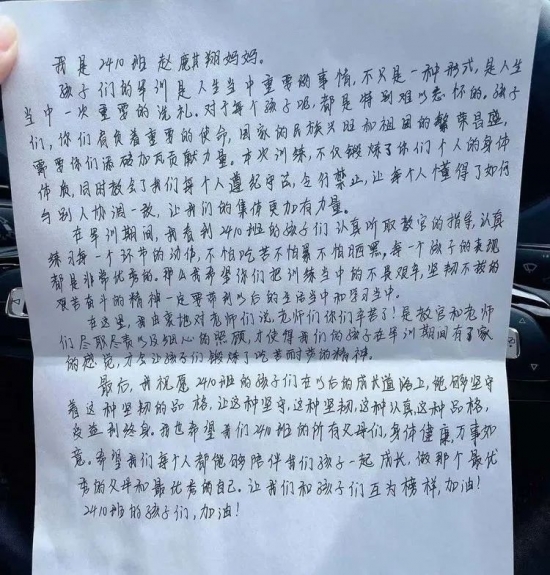 我是2410班赵麒翔妈妈。
孩子们的军训是人生当中重要的事情,不只是一种形式,是人生
当中一次重要的洗礼。对于每个孩子呢,都是特别难以忘怀的。孩子
们,你们肩负着重要的使命,国家的民族兴旺和祖国的繁荣昌盛,
需要你们添砖加瓦贡献力量。本次训练,不仅锻炼了你们个人的身体
体质,同时教会了我们每个人遵纪守法,令行禁止,让每个人懂得了如何
与别人协调一致,让我们的集体更加有力量。
在军训期间,我看到2410班的孩子们认真听取教官的指导,认真
练习每一个环节的动作,不怕吃苦不怕累不怕晒黑,每一个孩子的表现
都是非常优秀的。那么希望你们把训练当中的不畏艰辛,坚韧不拔的
艰苦奋斗的精神一定要带到以后的生活当中和学习当中。
在这里,我由衷地对老师们说,老师们你们辛苦了!是教官和老师
们尽职尽责以及细心的照顾,才使得我们的孩子在军训期间有了家
的感觉,才会让孩子们锻炼了吃苦耐劳的精神。
最后,我祝愿2410班的孩子们在以后的成长道路上,能够坚守
着这种坚韧的品格,让这种坚守,这种坚韧,这种认真,这种品格,
受益到终身。我也希望我们2410班的所有父母们,身体健康万事如
意。希望我们每个人都能够陪伴我们孩子一起成长,做那个最优
秀的父母和最优秀的自己。让我们和孩子们互为榜样,加油!
2410班的孩子们,加油!